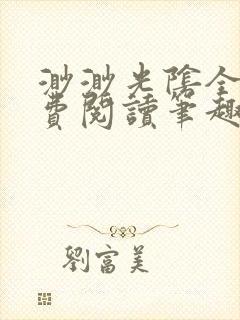 渺渺光陰全
費閱讀筆趣
劉富美